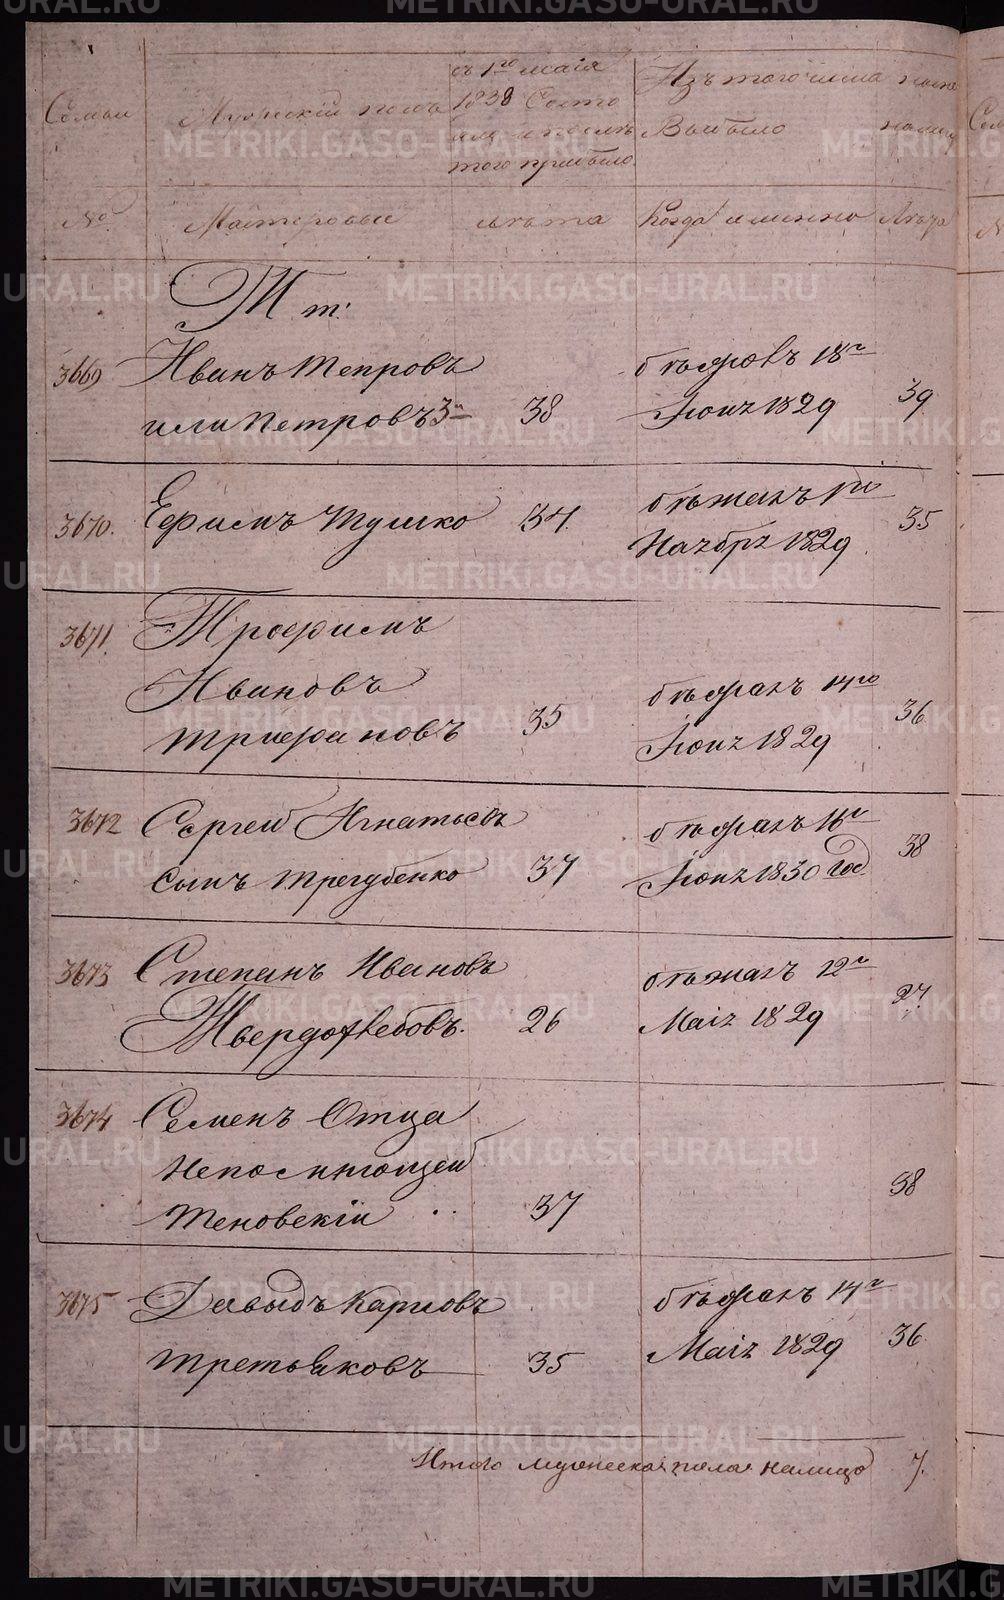 Семьи
Мужскій полъ
съ 1го маія
1838 Состо
того прибыло
Изъ того числа
Выбыло
№
Мастеровые
лѣта
Когда именно
Лѣта
Т т:
3669 Иванъ Тепровъ
или Петровъ 3й 38
18го
Іюня 1829 39
3670. Ефимъ Тушко 34
бѣжалъ 1го
Ноября 1829 35
3671. Трофимъ
Ивановъ
Трифановъ 35
бѣжалъ 14го
Іюня 1829 36
3672 Сергей Игнатьевъ
сынъ Трегубенко 37
бѣжалъ 16го
Іюня 1830 год 38
3673 Степанъ Ивановъ
Твердохлебовъ. 26
бѣжалъ 12го
Маія 1829 27
3674 Семенъ Отца
Непомнющей
Теновскій 37 38
3675 Давыдъ Карповъ
Третьяковъ 35
бѣжалъ 14го
Маія 1829 36
Итого мужеска пола налицо 7.
METRIKI.GASO-URAL.RU